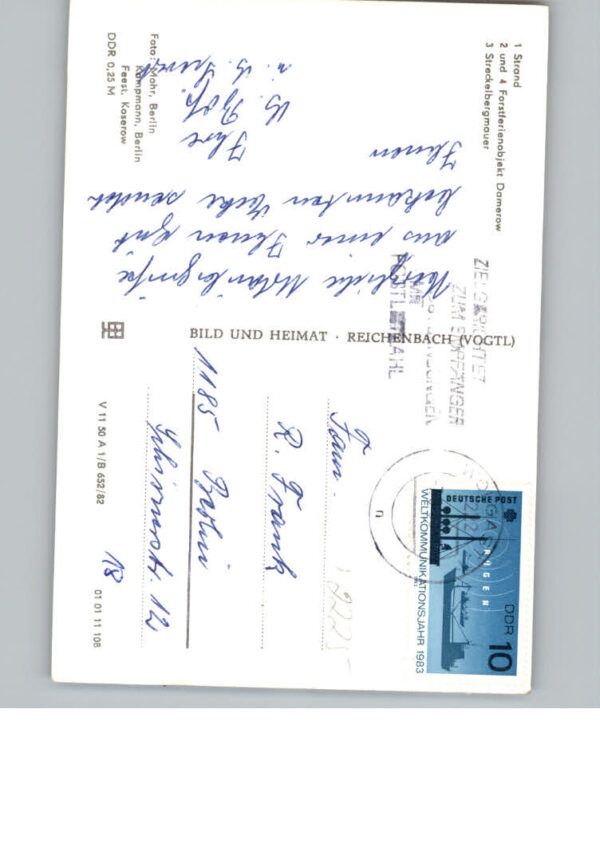 1 Strand
2 und 4 Forstferienobjekt Damerow
3 Streckelbergmauer
Herzliche Urlaubsgrüße
aus einer Ihnen gut
bekannten Ecke sendet
Ihnen
Ihre
Foto: Mohr, Berlin
Kampmann, Berlin
Feest, Koserow
DDR 0,25 M
BILD UND HEIMAT · REICHENBACH (VOGTL)
V 11 50 A 1/B 652/82
01 01 11 108
ZIELGERICHTET
ZUM EMPFÄNGER
SENDUNGEN
MIT
POSTLEITZAHL
WOLGAST
DEUTSCHE POST
RÜGEN
DDR
10
WELTKOMMUNIKATIONSJAHR 1983
Fam.
R. Frank
1185 Berlin
Schirnerstr. 12
18